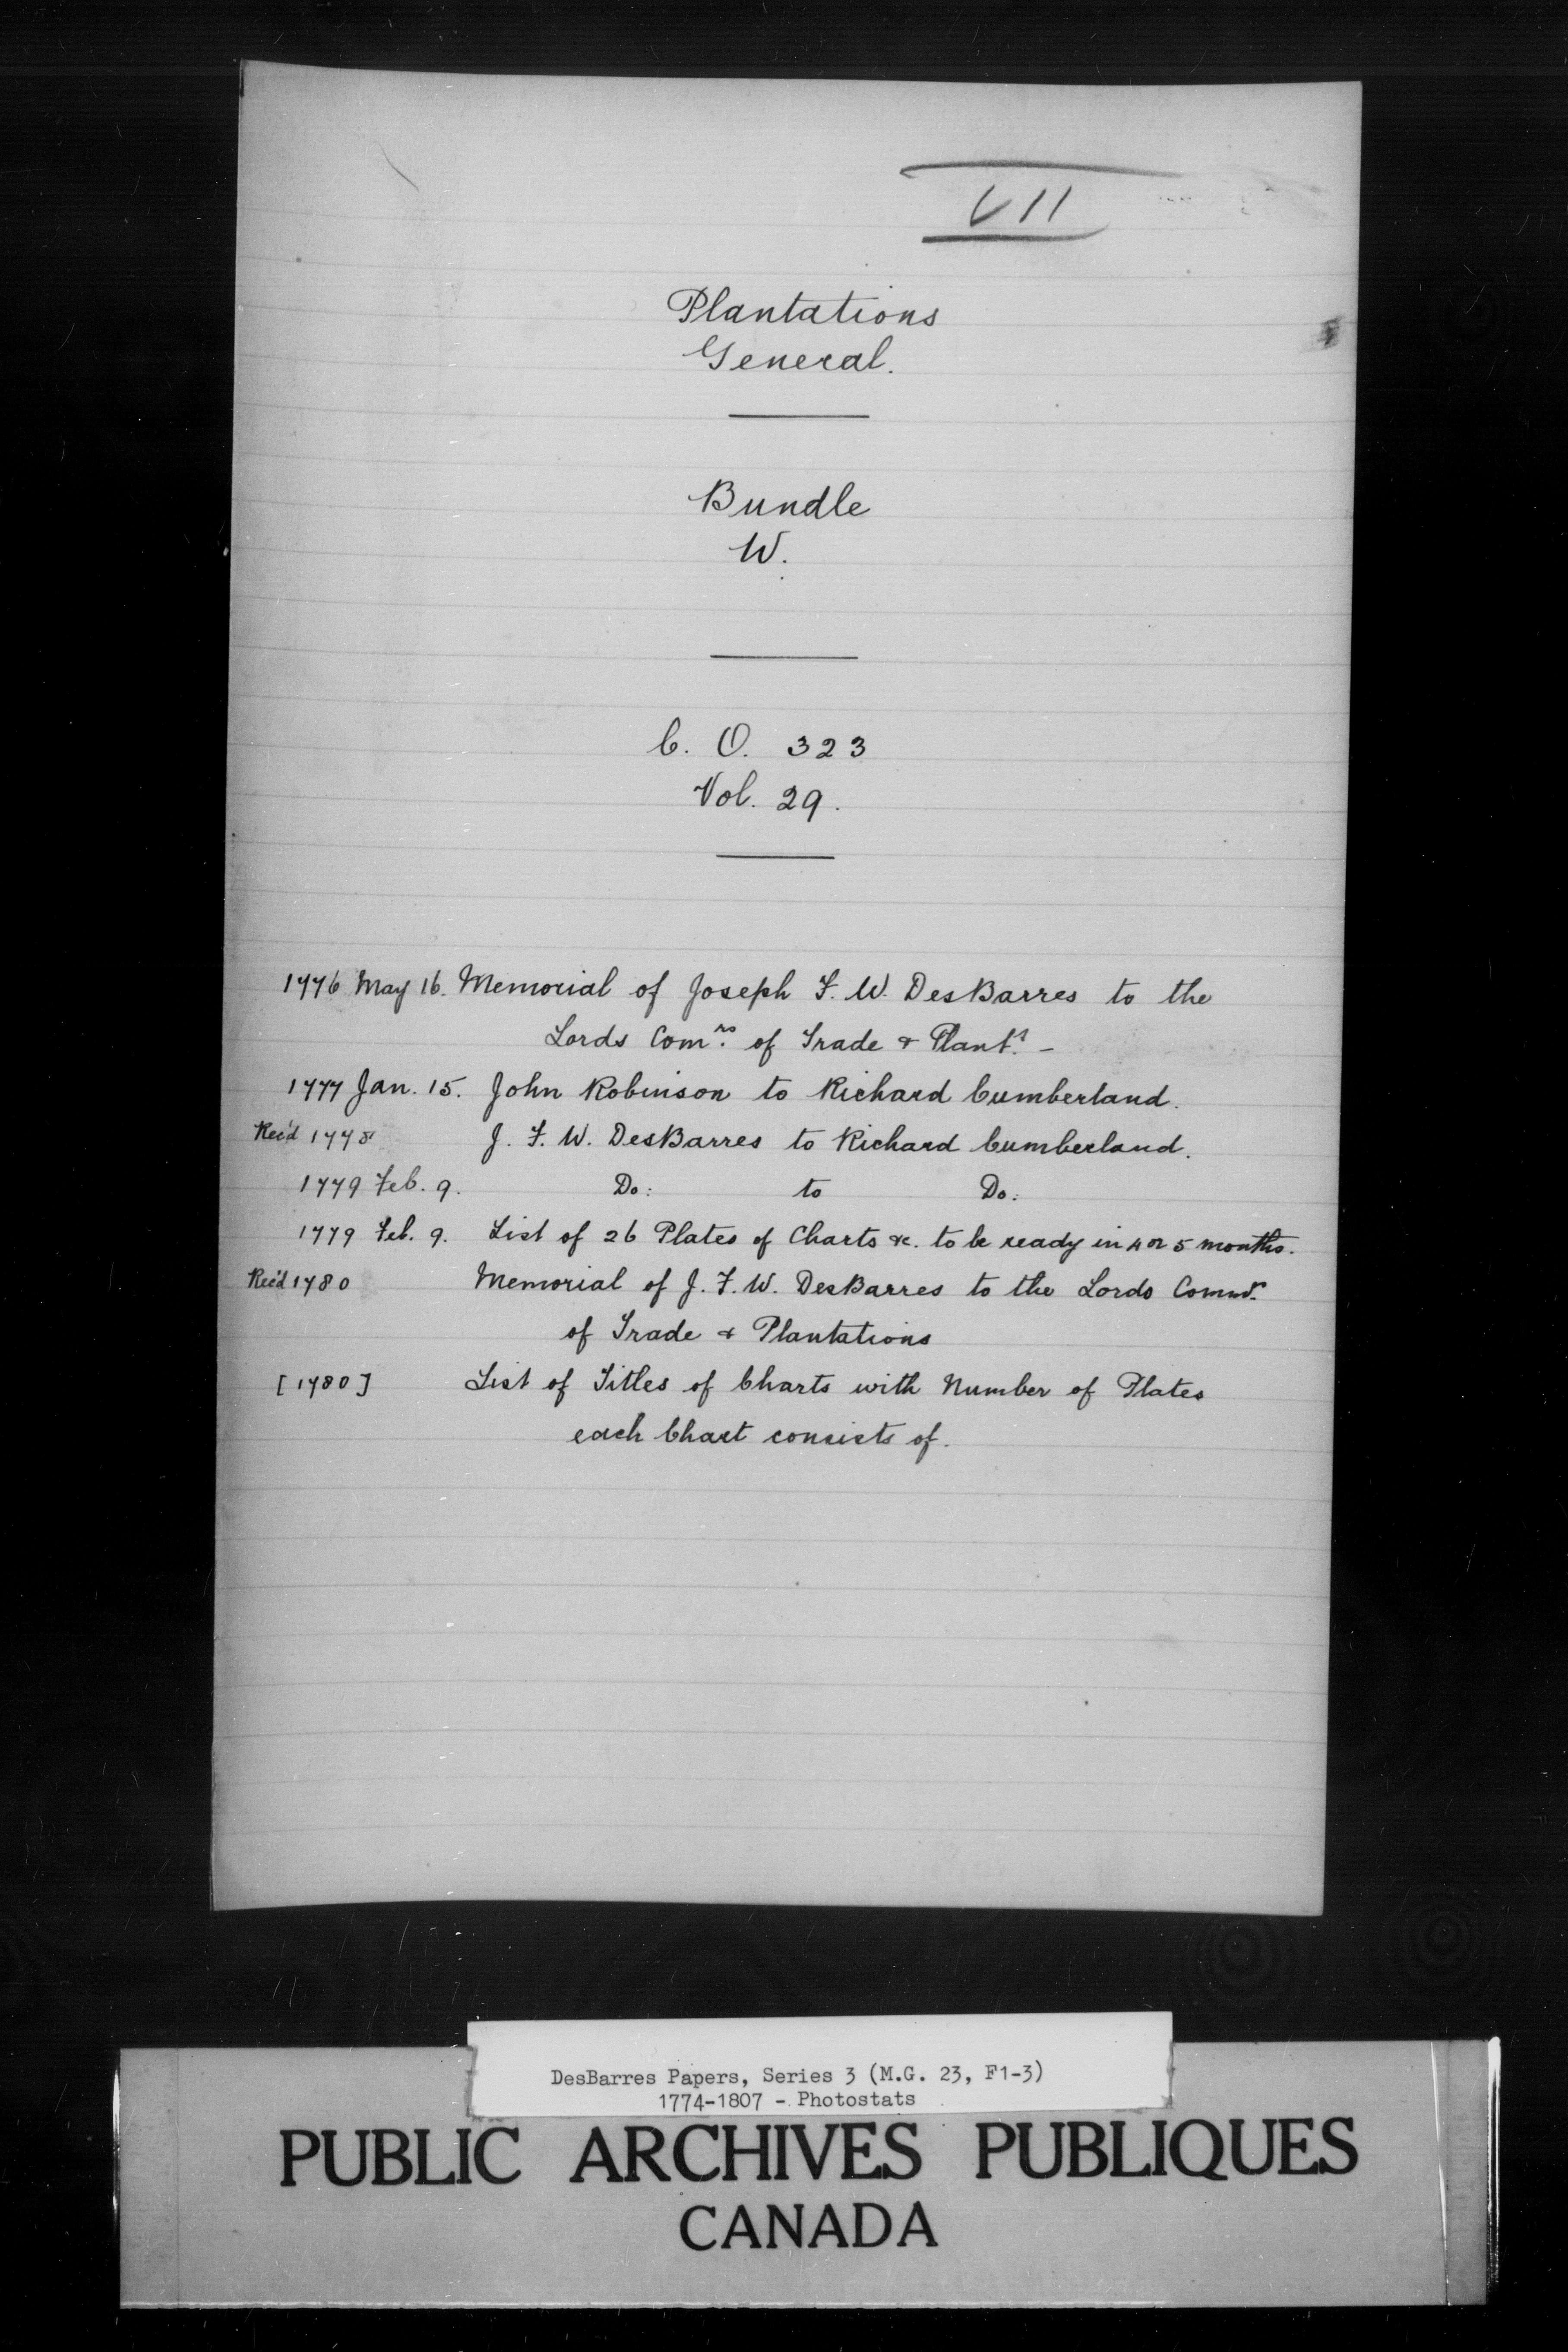 VII
Plantations
General.
Bundle
W.
C. O. 323
Vol. 29.
1776 May 16. Memorial of Joseph F. W. DesBarres to the
Lords Comrs. of Trade & Plants. -
1777 Jan. 15. John Robinson to Richard Cumberland.
Rec'd 1778 J. F. W. DesBarres to Richard Cumberland.
1779 Feb. 9. Do: to Do:
1779 Feb. 9. List of 26 Plates of Charts &c. to be ready in 4 or 5 months.
Rec'd 1780 Memorial of J. F. W. DesBarres to the Lords Commrs.
of Trade & Plantations
[1780] List of Titles of Charts with Number of Plates
each Chart consists of.
DesBarres Papers, Series 3 (M.G. 23, F1-3)
1774-1807 - Photostats
PUBLIC ARCHIVES PUBLIQUES
CANADA